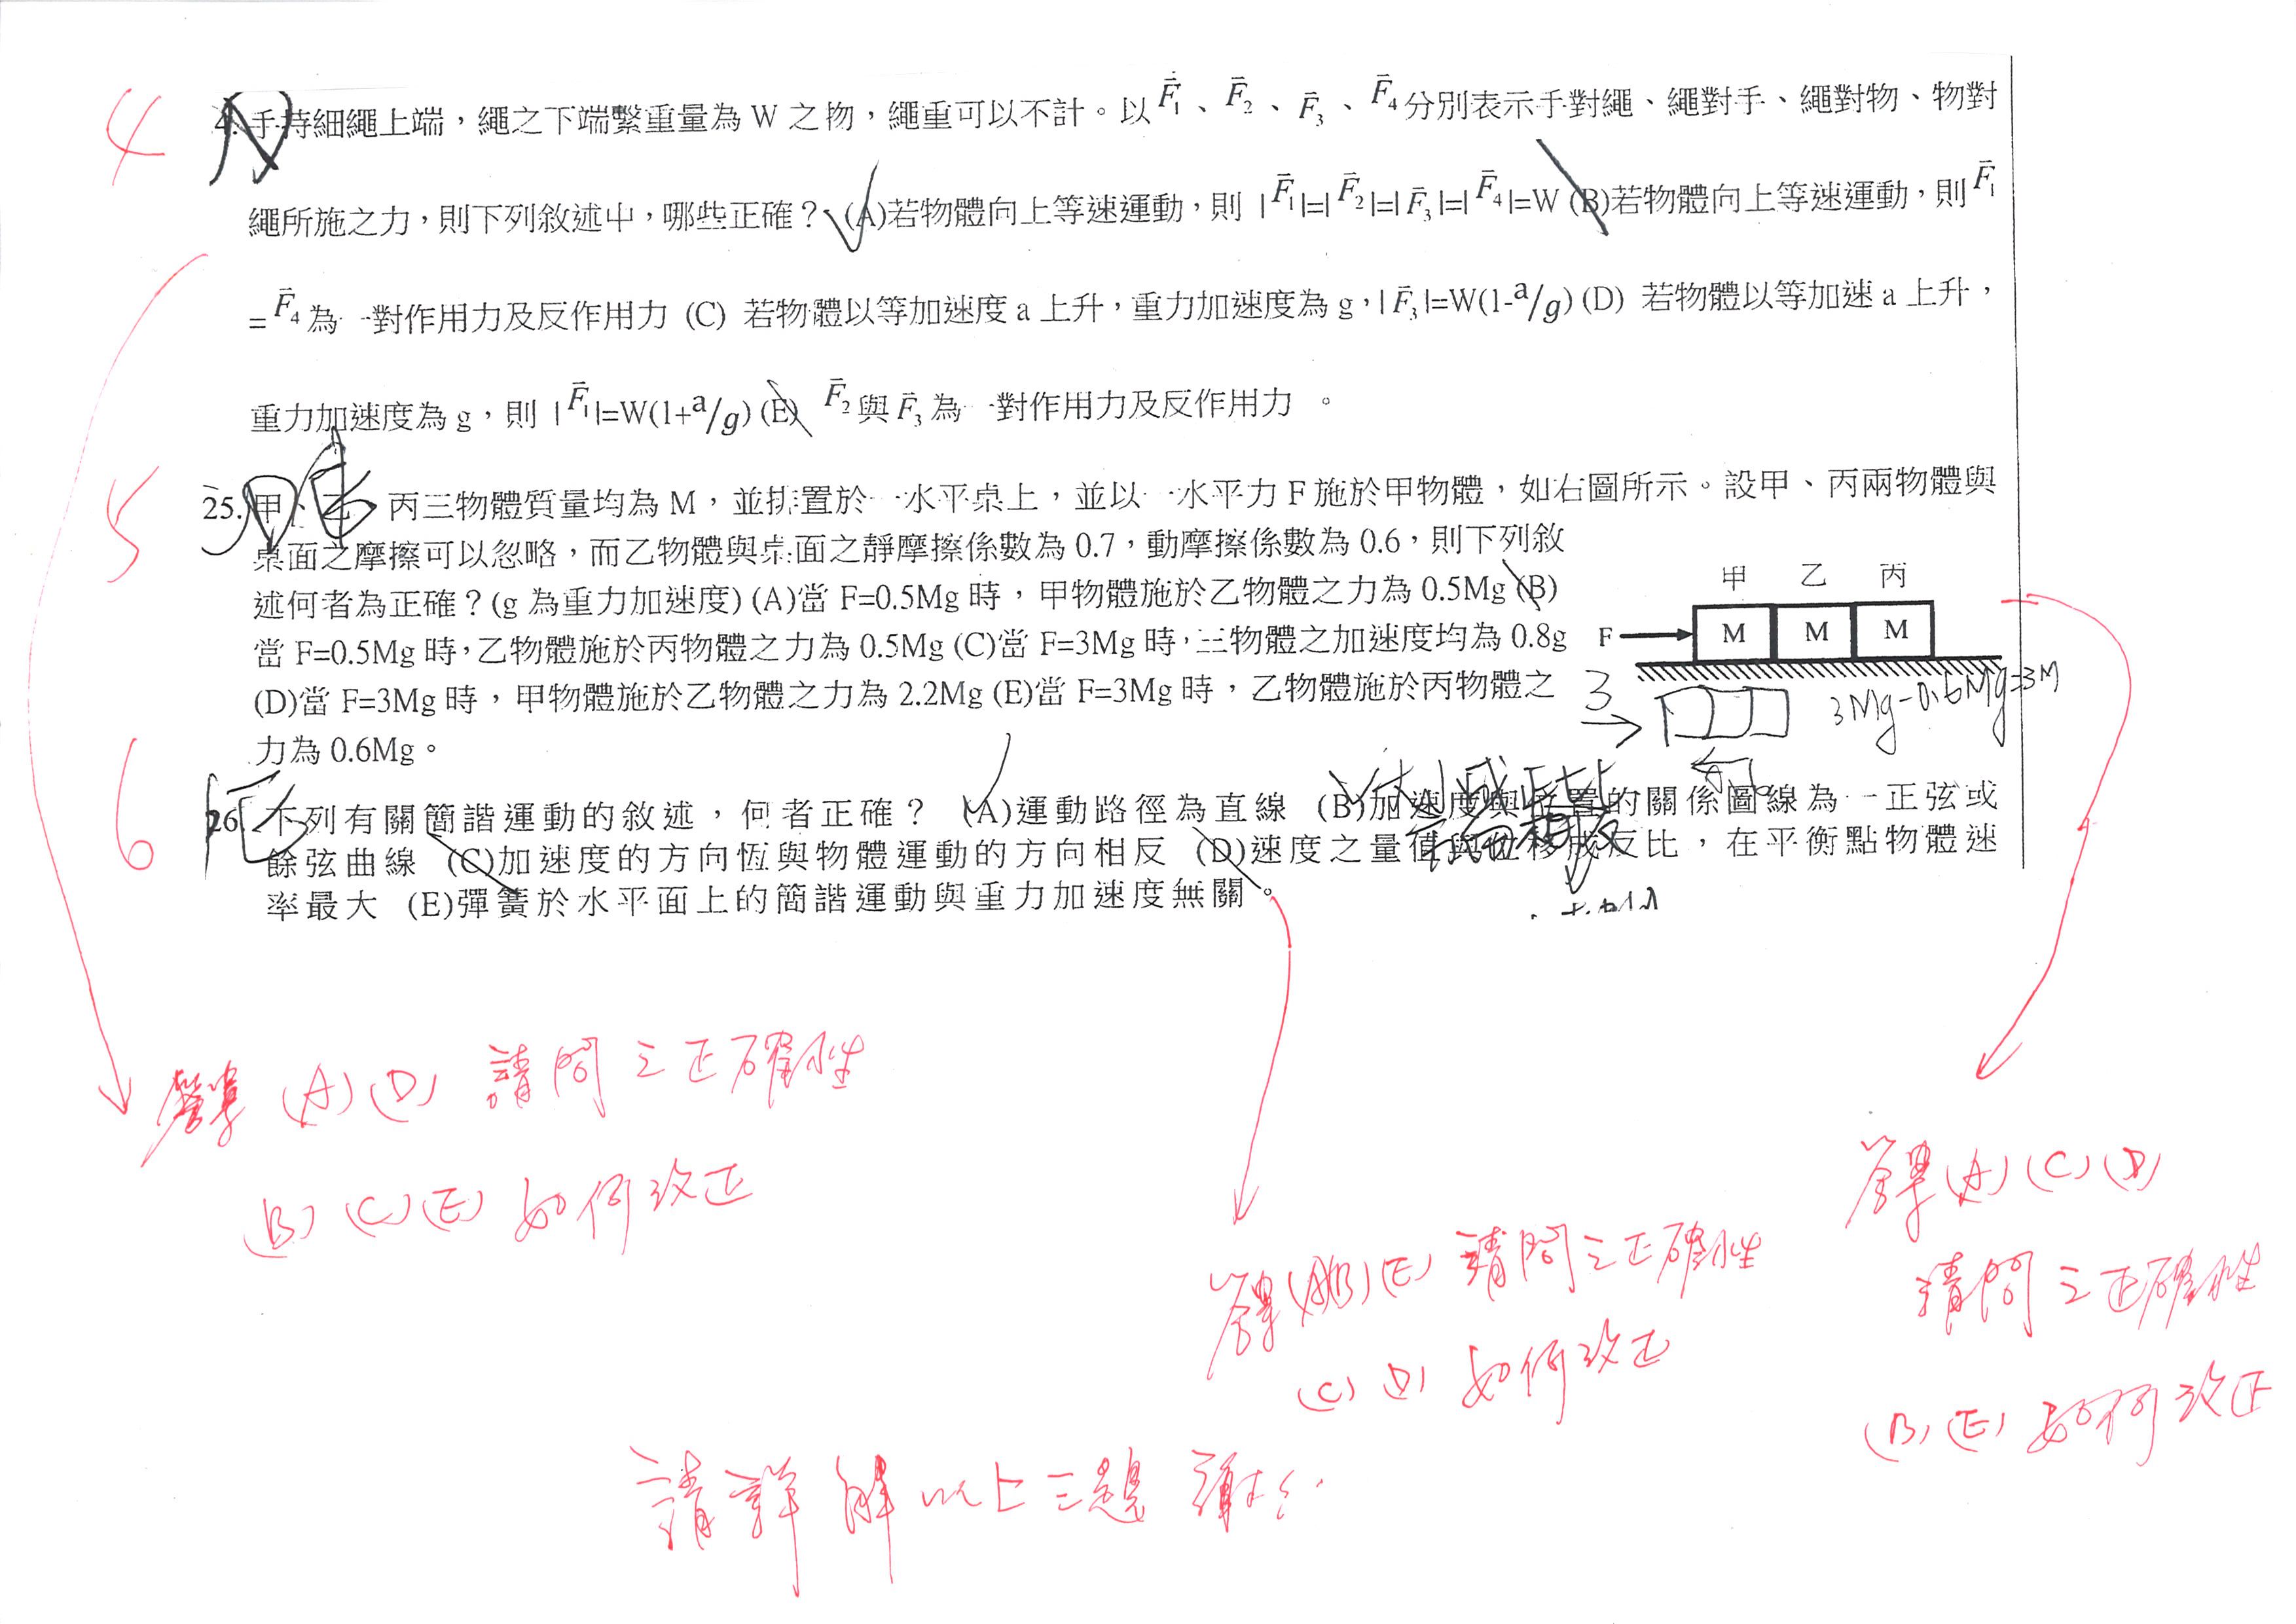 4
手持細繩上端，繩之下端繫重量為 W 之物，繩重可以不計。以 F̄₁、F̄₂、F̄₃、F̄₄ 分別表示手對繩、繩對手、繩對物、物對
繩所施之力，則下列敘述中，哪些正確？ (A)若物體向上等速運動，則 |F̄₁|=|F̄₂|=|F̄₃|=|F̄₄|=W (B)若物體向上等速運動，則 F̄₁
=F̄₄ 為一對作用力及反作用力 (C) 若物體以等加速度 a 上升，重力加速度為 g，|F̄₃|=W(1-a/g) (D) 若物體以等加速 a 上升，
重力加速度為 g，則 |F̄₁|=W(1+a/g) (E) F̄₂ 與 F̄₃ 為一對作用力及反作用力 。
5
25. 甲、乙、丙三物體質量均為 M，並排置於一水平桌上，並以一水平力 F 施於甲物體，如右圖所示。設甲、丙兩物體與
桌面之摩擦可以忽略，而乙物體與桌面之靜摩擦係數為 0.7，動摩擦係數為 0.6，則下列敘
述何者為正確？(g 為重力加速度) (A)當 F=0.5Mg 時，甲物體施於乙物體之力為 0.5Mg (B)
當 F=0.5Mg 時，乙物體施於丙物體之力為 0.5Mg (C)當 F=3Mg 時，三物體之加速度均為 0.8g
(D)當 F=3Mg 時，甲物體施於乙物體之力為 2.2Mg (E)當 F=3Mg 時，乙物體施於丙物體之
力為 0.6Mg。
甲 乙 丙
F M M M
3
3Mg-0.6Mg=3M
6
26. 下列有關簡諧運動的敘述，何者正確？ (A)運動路徑為直線 (B)加速度與位置的關係圖線為一正弦或
餘弦曲線 (C)加速度的方向恆與物體運動的方向相反 (D)速度之量值與位移成反比，在平衡點物體速
率最大 (E)彈簧於水平面上的簡諧運動與重力加速度無關。
答案 (A)(D) 請問之正確性
(B)(C)(E) 如何改正
答案(A)(B)(E) 請問之正確性
(C)(D) 如何改正
答案(A)(C)(D)
請問之正確性
(B)(E) 如何改正
請詳解以上三題 謝謝